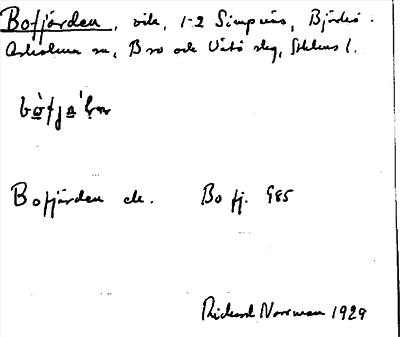 Bofjärden, vik, 1-2 Simpnäs, Björkö-
Arholma sn, Bro och Väto skg, Sthlms l.
Bofjärden ek. Bo fj. G85
Rickard Norrman 1929